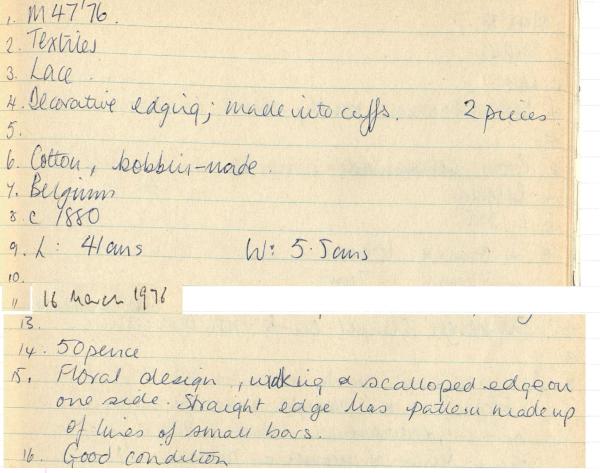 1. M47'76.
2. Textiles
3. Lace.
4. Decorative edging; made into cuffs. 2 pieces
5.
6. Cotton, bobbin-made.
7. Belgium
8. c 1880
9. L: 41cms W: 5.5cms
10.
11 16 March 1976
13.
14. 50pence
15. Floral design, making a scalloped edge on
one side. Straight edge has pattern made up
of lines of small bars.
16. Good condition